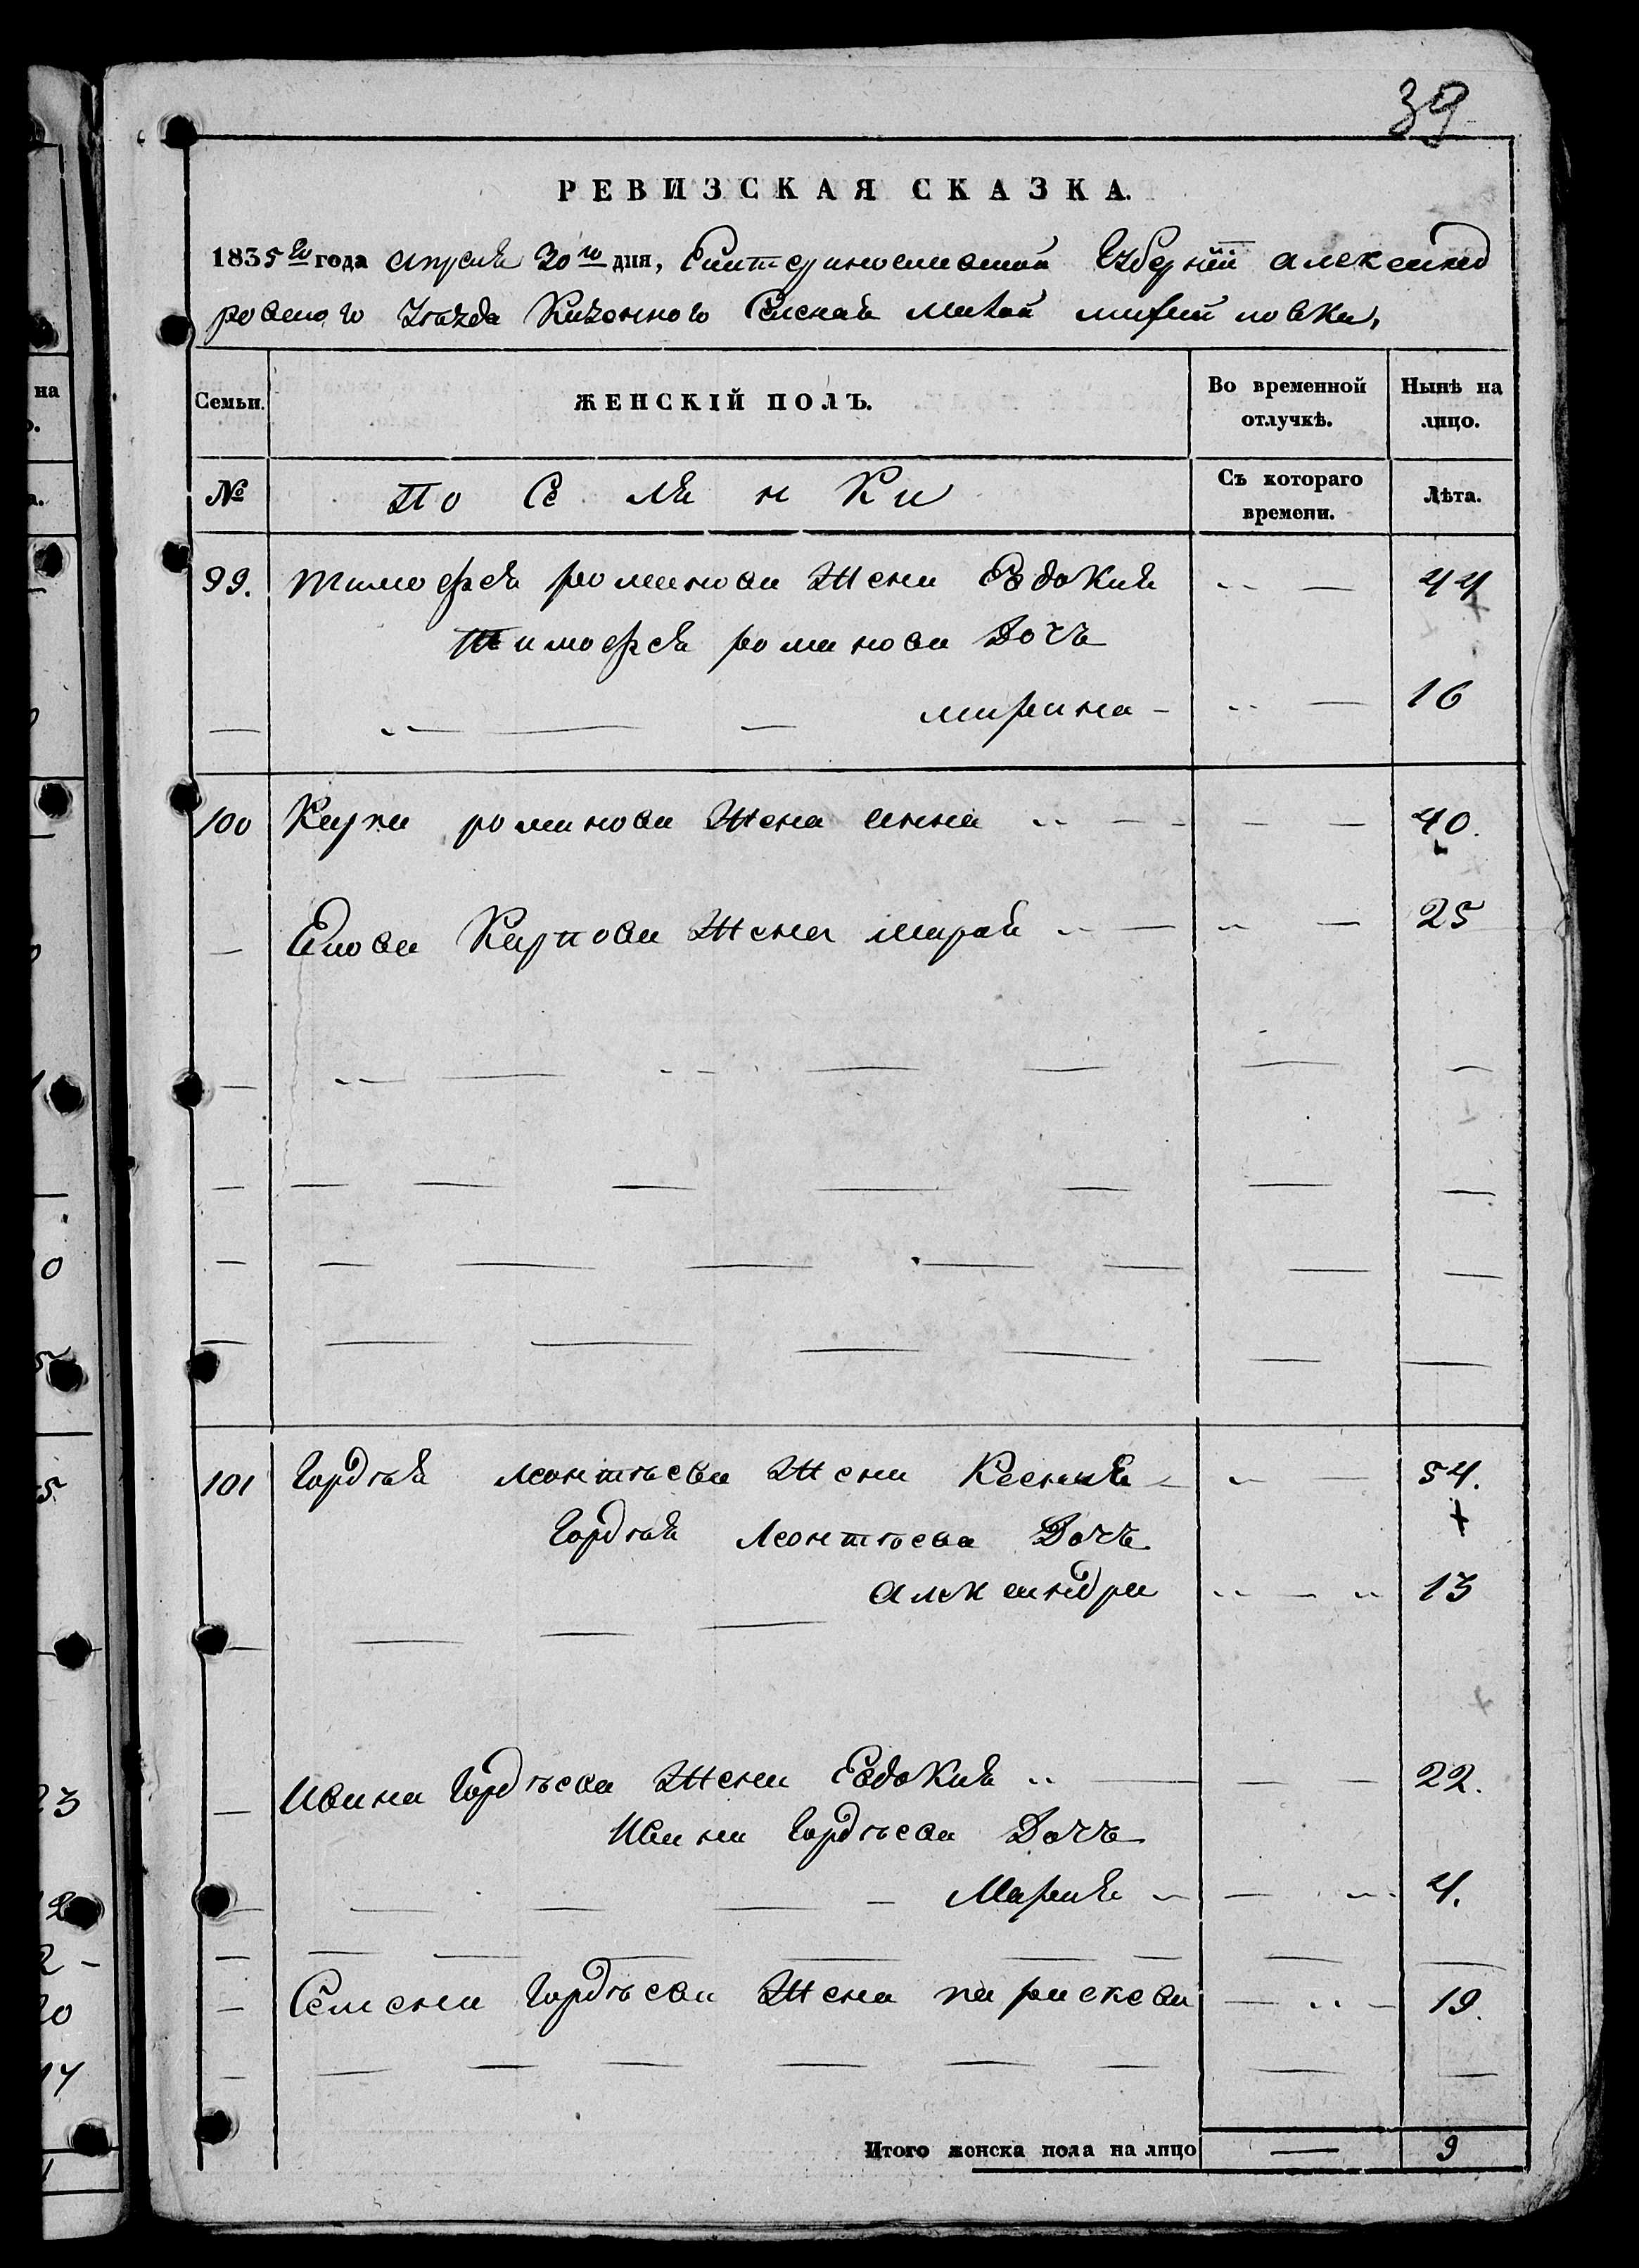 39
РЕВИЗСКАЯ СКАЗКА.
1835го года апреля 30го дня, Екатеринославской Губернiи александ
ровского Уѣзда Казенного Селенiя малой михайловки,
Семьи. ЖЕНСКІЙ ПОЛЪ. Во временной отлучкѣ. Нынѣ на лицо.
№ По Се ля н Ки Съ котораго времени. Лѣта.
99. тимофея романова Жена Евдокия 44
тимофея романова Дочь
марина 16
100 Карпа романова Жена анна 40.
Карпова Жена 25
101 Гордѣя леонтѣева Жена Ксения 54.
Гордѣя Леонтѣева Дочь
александра 13
Ивана Гордѣева Жена Евдокия 22.
Ивана Гордѣева Дочь
Мария 4.
Семена Гордѣева Жена параскева 19.
Итого женска пола на лицо 9